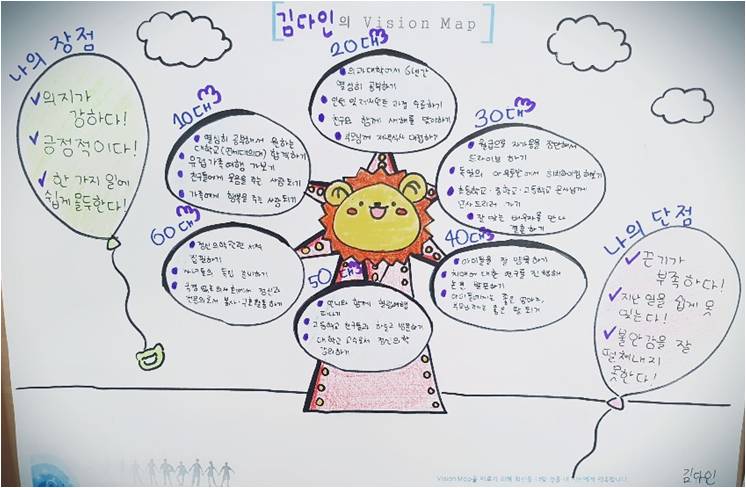 김다인의 Vision Map
나의 장점
✓의지가
강하다!
✓긍정적이다!
✓한 가지 일에
쉽게 몰두한다!
10대
열심히 공부해서 원하는
대학교(연세대의대) 합격하기
유럽가족여행 가보기
친구들에게 웃음을 주는 사람 되기
가족에게 행복을 주는 사람되기
20대
의과대학에서 6년간
열심히 공부하기
인턴 및 레지던트 과정 수료하기
친구와 함께 새해를 맞이하기
부모님께 저녁식사 대접하기
30대
월급으로 자가용을 장만해서
드라이브 하기
독일의
초등학교·중학교·고등학교 은사님께
인사드리러 가기
잘 맞는 배우자를 만나
결혼하기
40대
아이들을 잘 양육하기
치매에 대한 연구를 진행해
논문 발표하기
아이들에게는 좋은 엄마로,
부모님께는 좋은 딸 되기
50대
언니와 함께 힐링여행
떠나기
고등학교 친구들과 하늘고 방문하기
대학교 교수로서 정신의학
강의하기
60대
정신의학관련 서적
집필하기
자녀들의 독립 준비하기
국경없는의사회에서 정신과
전문의로서 봉사·구호활동하기
나의 단점
✓끈기가
부족하다!
✓지난 일을 쉽게 못
잊는다!
✓불안감을 잘
떨쳐내지
못한다!
김다인